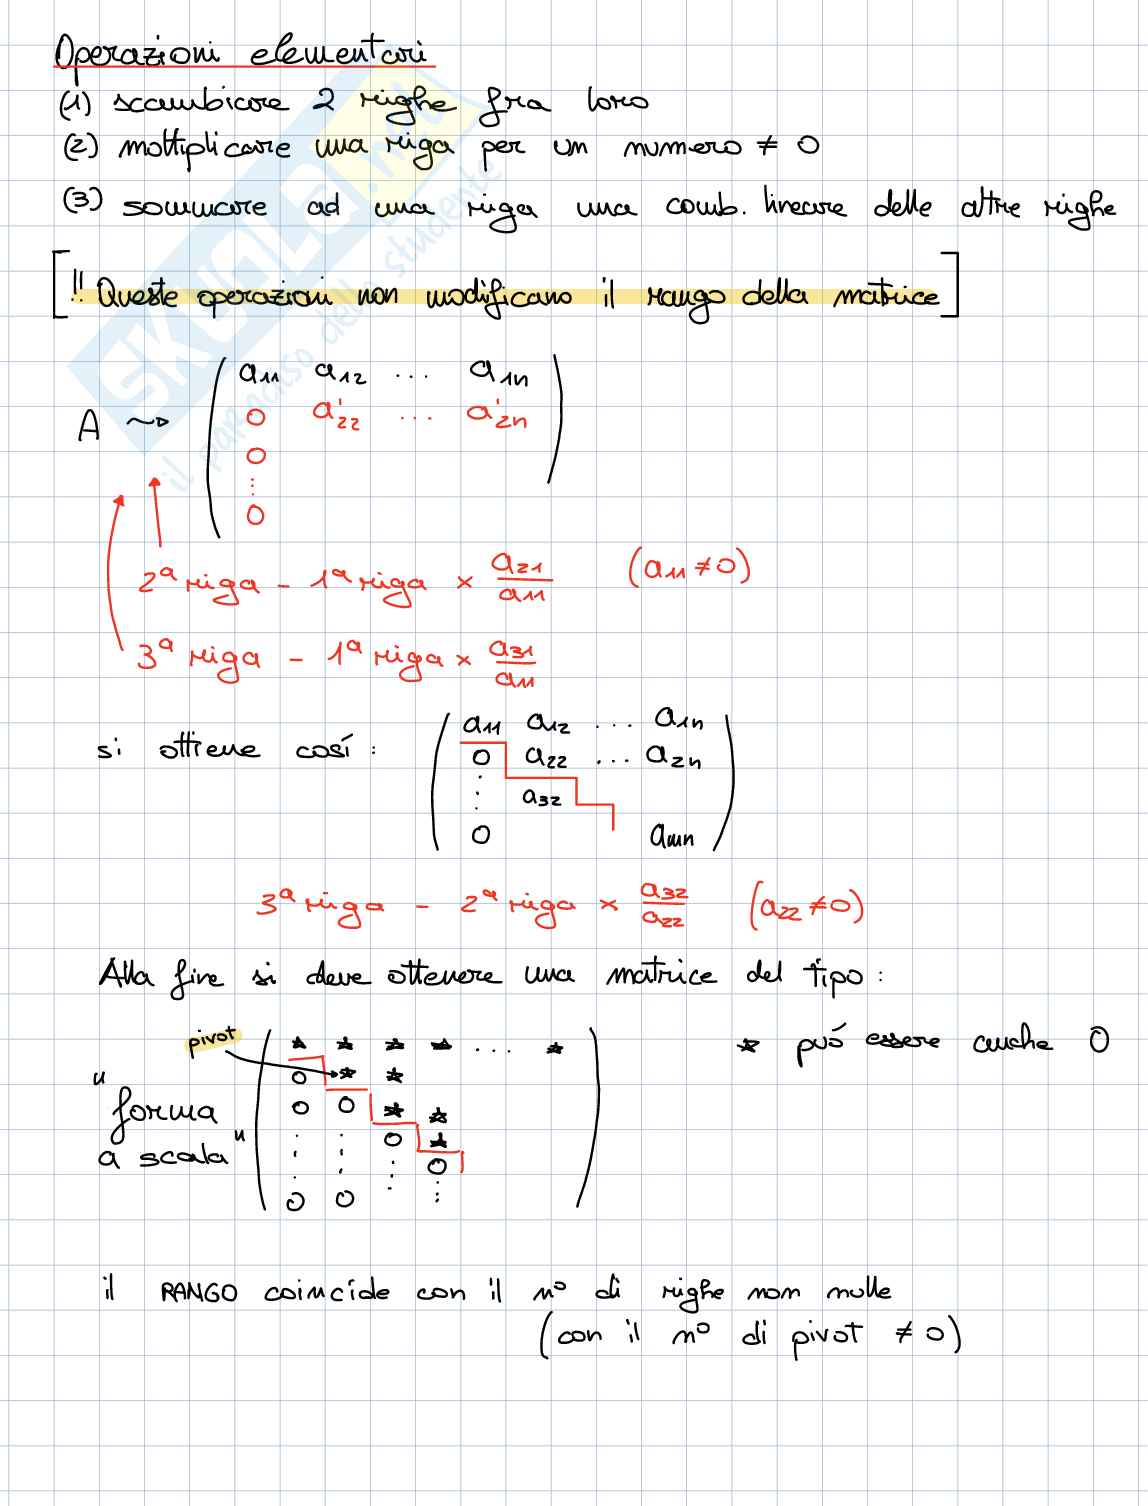 Operazioni elementari
(1) scambiare 2 righe fra loro
(2) moltiplicare una riga per un numero ≠ 0
(3) sommare ad una riga una comb. lineare delle altre righe
[!! Queste operazioni non modificano il rango della matrice]
a11 a12 ... a1n
A ⤳ 0 a'22 ... a'2n
0
⋮
0
2ª riga - 1ª riga × a21/a11 (a11 ≠ 0)
3ª riga - 1ª riga × a31/a11
a11 a12 ... a1n
si ottiene così: 0 a22 ... a2n
⋮ a32
0 amn
3ª riga - 2ª riga × a32/a22 (a22 ≠ 0)
Alla fine si deve ottenere una matrice del tipo:
pivot ★ ★ ★ ★ ... ★ ★ può essere anche 0
0 ★ ★
"forma 0 0 ★ ★
⋮ ⋮ 0 ★
a scala" ⋮ ⋮ ⋮ 0
0 0 ⋮
il RANGO coincide con il n° di righe non nulle
(con il n° di pivot ≠ 0)
SKUOLA.net
il paradiso dello studente